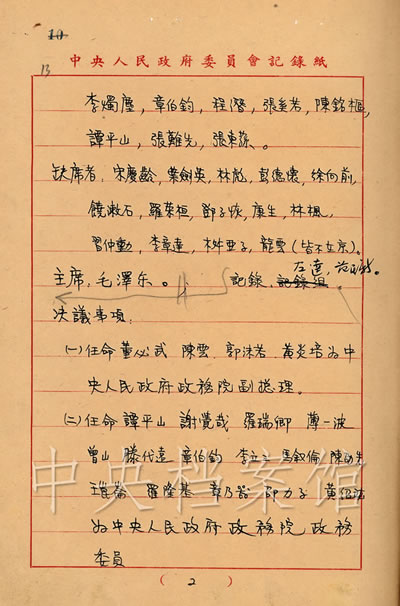 10
13
中央人民政府委員會記錄紙
李燭塵，章伯鈞，程潛，張奚若，陳銘樞，
譚平山，張難先，張東蓀。
缺席者：宋慶齡，葉劍英，林彪，彭德懷，徐向前，
饒漱石，羅榮桓，鄧子恢，康生，林楓，
習仲勳，李章達，柳亞子，龍雲（皆不在京）。
主席：毛澤东。 記錄 記錄組
决議事項：
㈠任命董必武 陳雲 郭沫若 黄炎培为中
央人民政府政務院副總理。
㈡任命譚平山 謝覺哉 羅瑞卿 薄一波
曾山 滕代遠 章伯鈞 李立三 馬叙倫 陳劭先
王崑崙 羅隆基 章乃器 邵力子 黄绍竑
为中央人民政府政務院政務
委員
( 2 )
中央档案馆